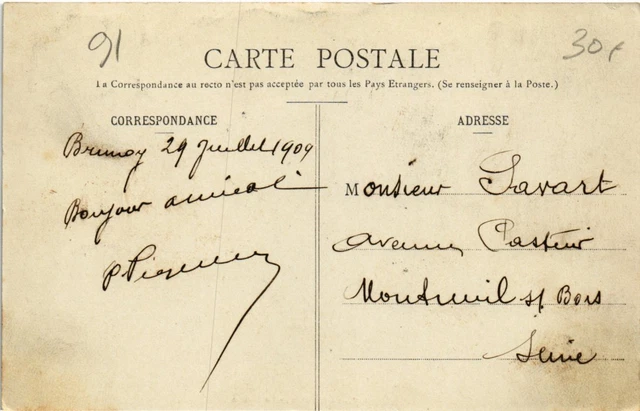 91
30f
CARTE POSTALE
La Correspondance au recto n'est pas acceptée par tous les Pays Etrangers. (Se renseigner à la Poste.)
CORRESPONDANCE
Brunoy 29 Juillet 1909
Bonjour amical
ADRESSE
Monsieur Savart
avenue Pasteur
Montreuil s/ Bois
Seine